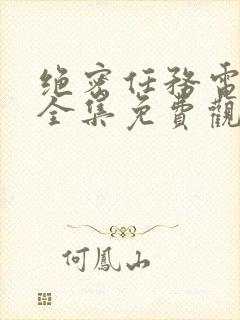 绝密任務電
全集免費觀
何鳳山